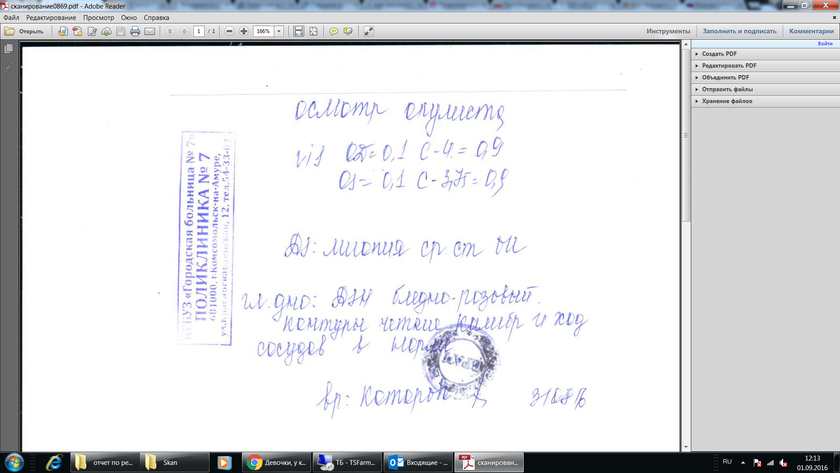 сканирование0869.pdf - Adobe Reader
Файл Редактирование Просмотр Окно Справка
Открыть 1 / 1 166% Инструменты Заполнить и подписать Комментарии
Войти
Создать PDF
Редактировать PDF
Объединить PDF
Отправить файлы
Хранение файлов
осмотр окулиста
vis OD=0,1 с-4.=0,9
OS=0,1 с-3,75=0,9
DS: миопия ср ст OU
гл. дно: ДЗН бледно-розовый.
контуры четкие калибр и ход
сосудов в норме
вр:
КГБУЗ «Городская больница № 7»
ПОЛИКЛИНИКА № 7
681000, г.Комсомольск-на-Амуре,
12, тел.54-33-
ВРАЧ
отчет по ре...
Skan
Девочки, у к...
ТБ - TSFarm...
Входящие - ...
сканирован...
RU
12:13
01.09.2016